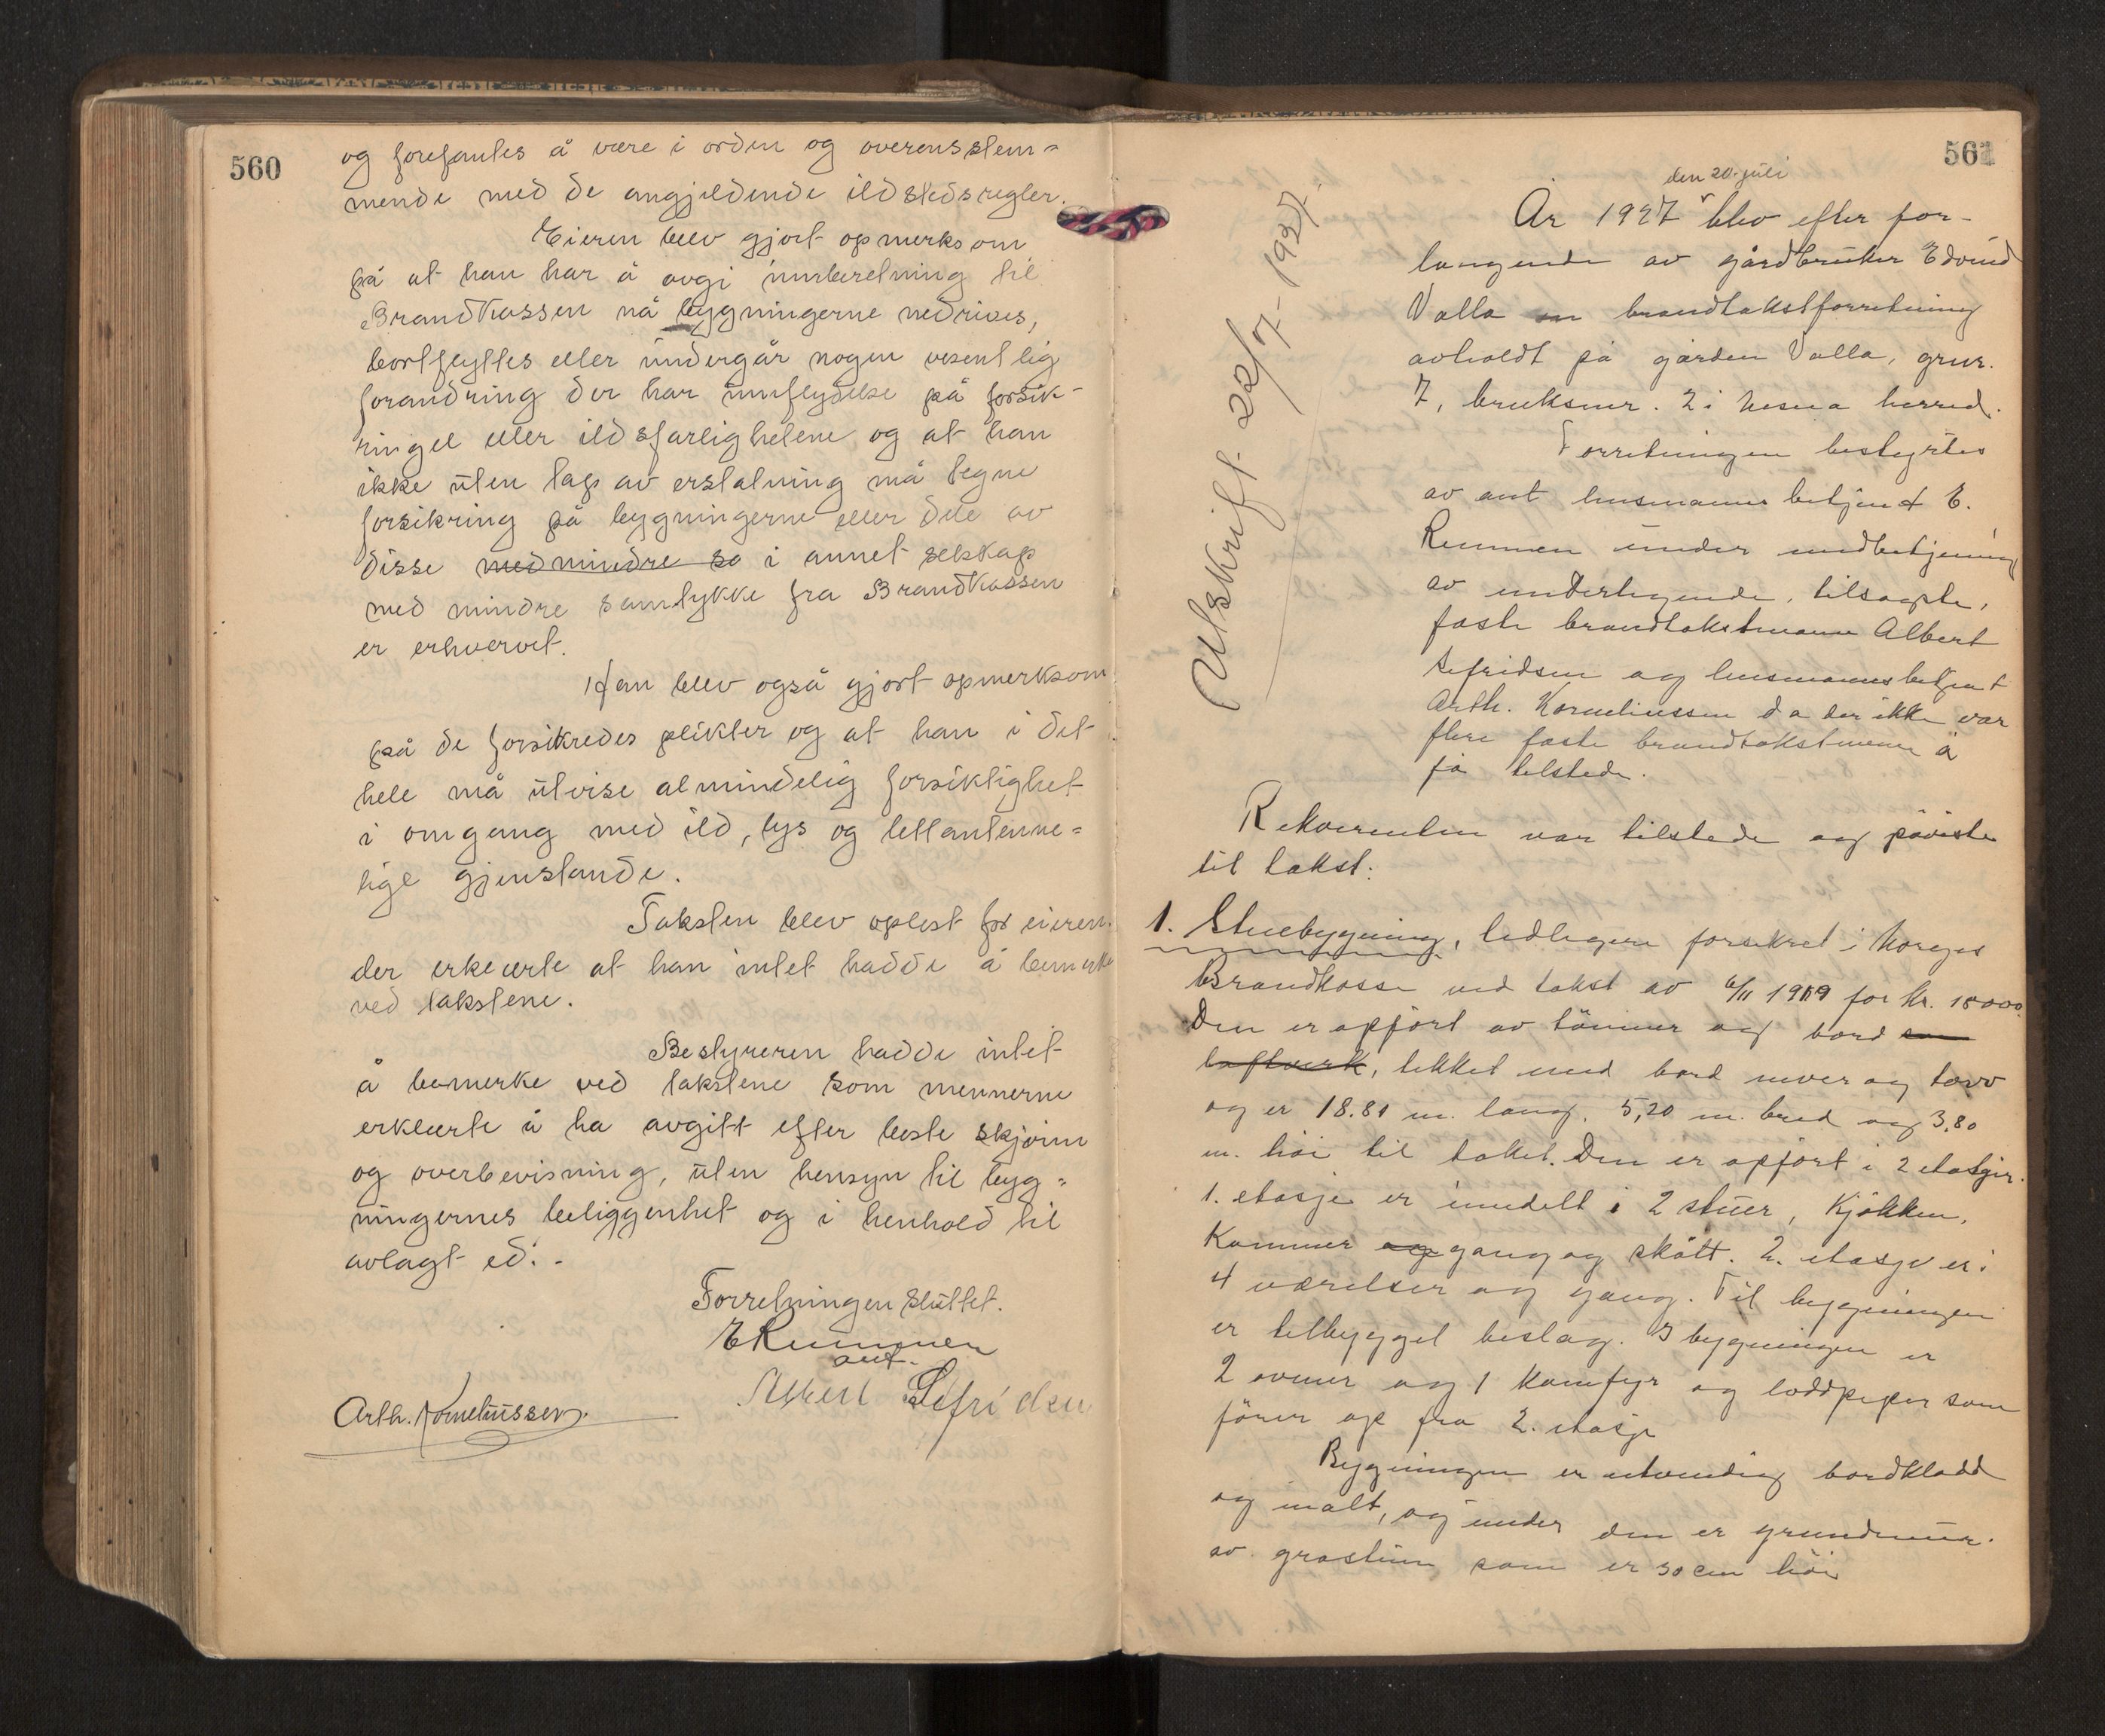 560
og forefantes å være i orden og overensstem-
mende med de angjeldende ildstedsregler.
Eieren blev gjort opmerksom
på at han har å avgi innberetning til
Brandkassen nå bygningerne nedrives,
bortflyttes eller undergår nogen vesentlig
forandring der har innflydelse på forsik-
ringel eller ildsfarlighetene og at han
ikke uten tap av erstatning må tegne
forsikring på bygningerne eller dele av
disse medmindre sa i annet selskap
med mindre samtykke fra Brandkassen
er erhvervet.
Han blev også gjort opmerksom
på de forsikredes plikter og at han i det
hele må utvise almindelig forsiktighet
i omgang med ild, lys og lettantenne-
lige gjenstande.
Taksten blev oplest for eieren.
der erkærte at han intet hadde å bemerke
ved takstene.
Bestyreren hadde intet
å bemerke ved takstene som mennerne
erklærte å ha avgitt efter beste skjønn
og overbevisning, uten hensyn til byg-
ningernes beliggenhet og i henhold til
avlagt ed. -
Forretningen sluttet.
E Rummen
ant.
Albert Sefridsen
Arth. Korneliussen.
561
Utskrift 22/7-1937.
den 20. juli
År 1927 blev efter for-
langende av gårdbruker Edvind
Valla en brandtakstforretning
avholdt på gården Valla, grnr.
7, bruksnr. 2 i Nesna herred.
Forretningen bestyrtes
av ant lensmanns betjent E.
Rummen under medbetjening
av undertegnede, tilsagte,
faste brandtakstmann Albert
Sefridsen og lensmannsbetjent
Arth. Korneliussen da der ikke var
flere faste brandtakstmenn å
få tilstede.
Rekvirenten var tilstede og påviste
til takst:
1. Stuebygning, tidligere forsikret i Norges
Brandkasse ved takst av 6/11 1919 for kr. 18000.
Den er opført av tømmer og bord som
loftverk, tekket med bord never og torv
og er 18.81 m. lang, 5,20 m. bred og 3,80
m. høi til taket. Den er opført i 2 etasjer.
1. etasje er inndelt i 2 stuer, kjøkken,
Kammer og gang og skått. 2. etasje er i
4 værelser og gang. Til bygningen
er tilbygget beslag. I bygningen er
2 ovner og 1 komfyr og loddpiper som
fører op fra 2. etasje
Bygningen er utvendig bordkledd
og malt, og under den er grundmur
av gråstein som er 30 cm høi